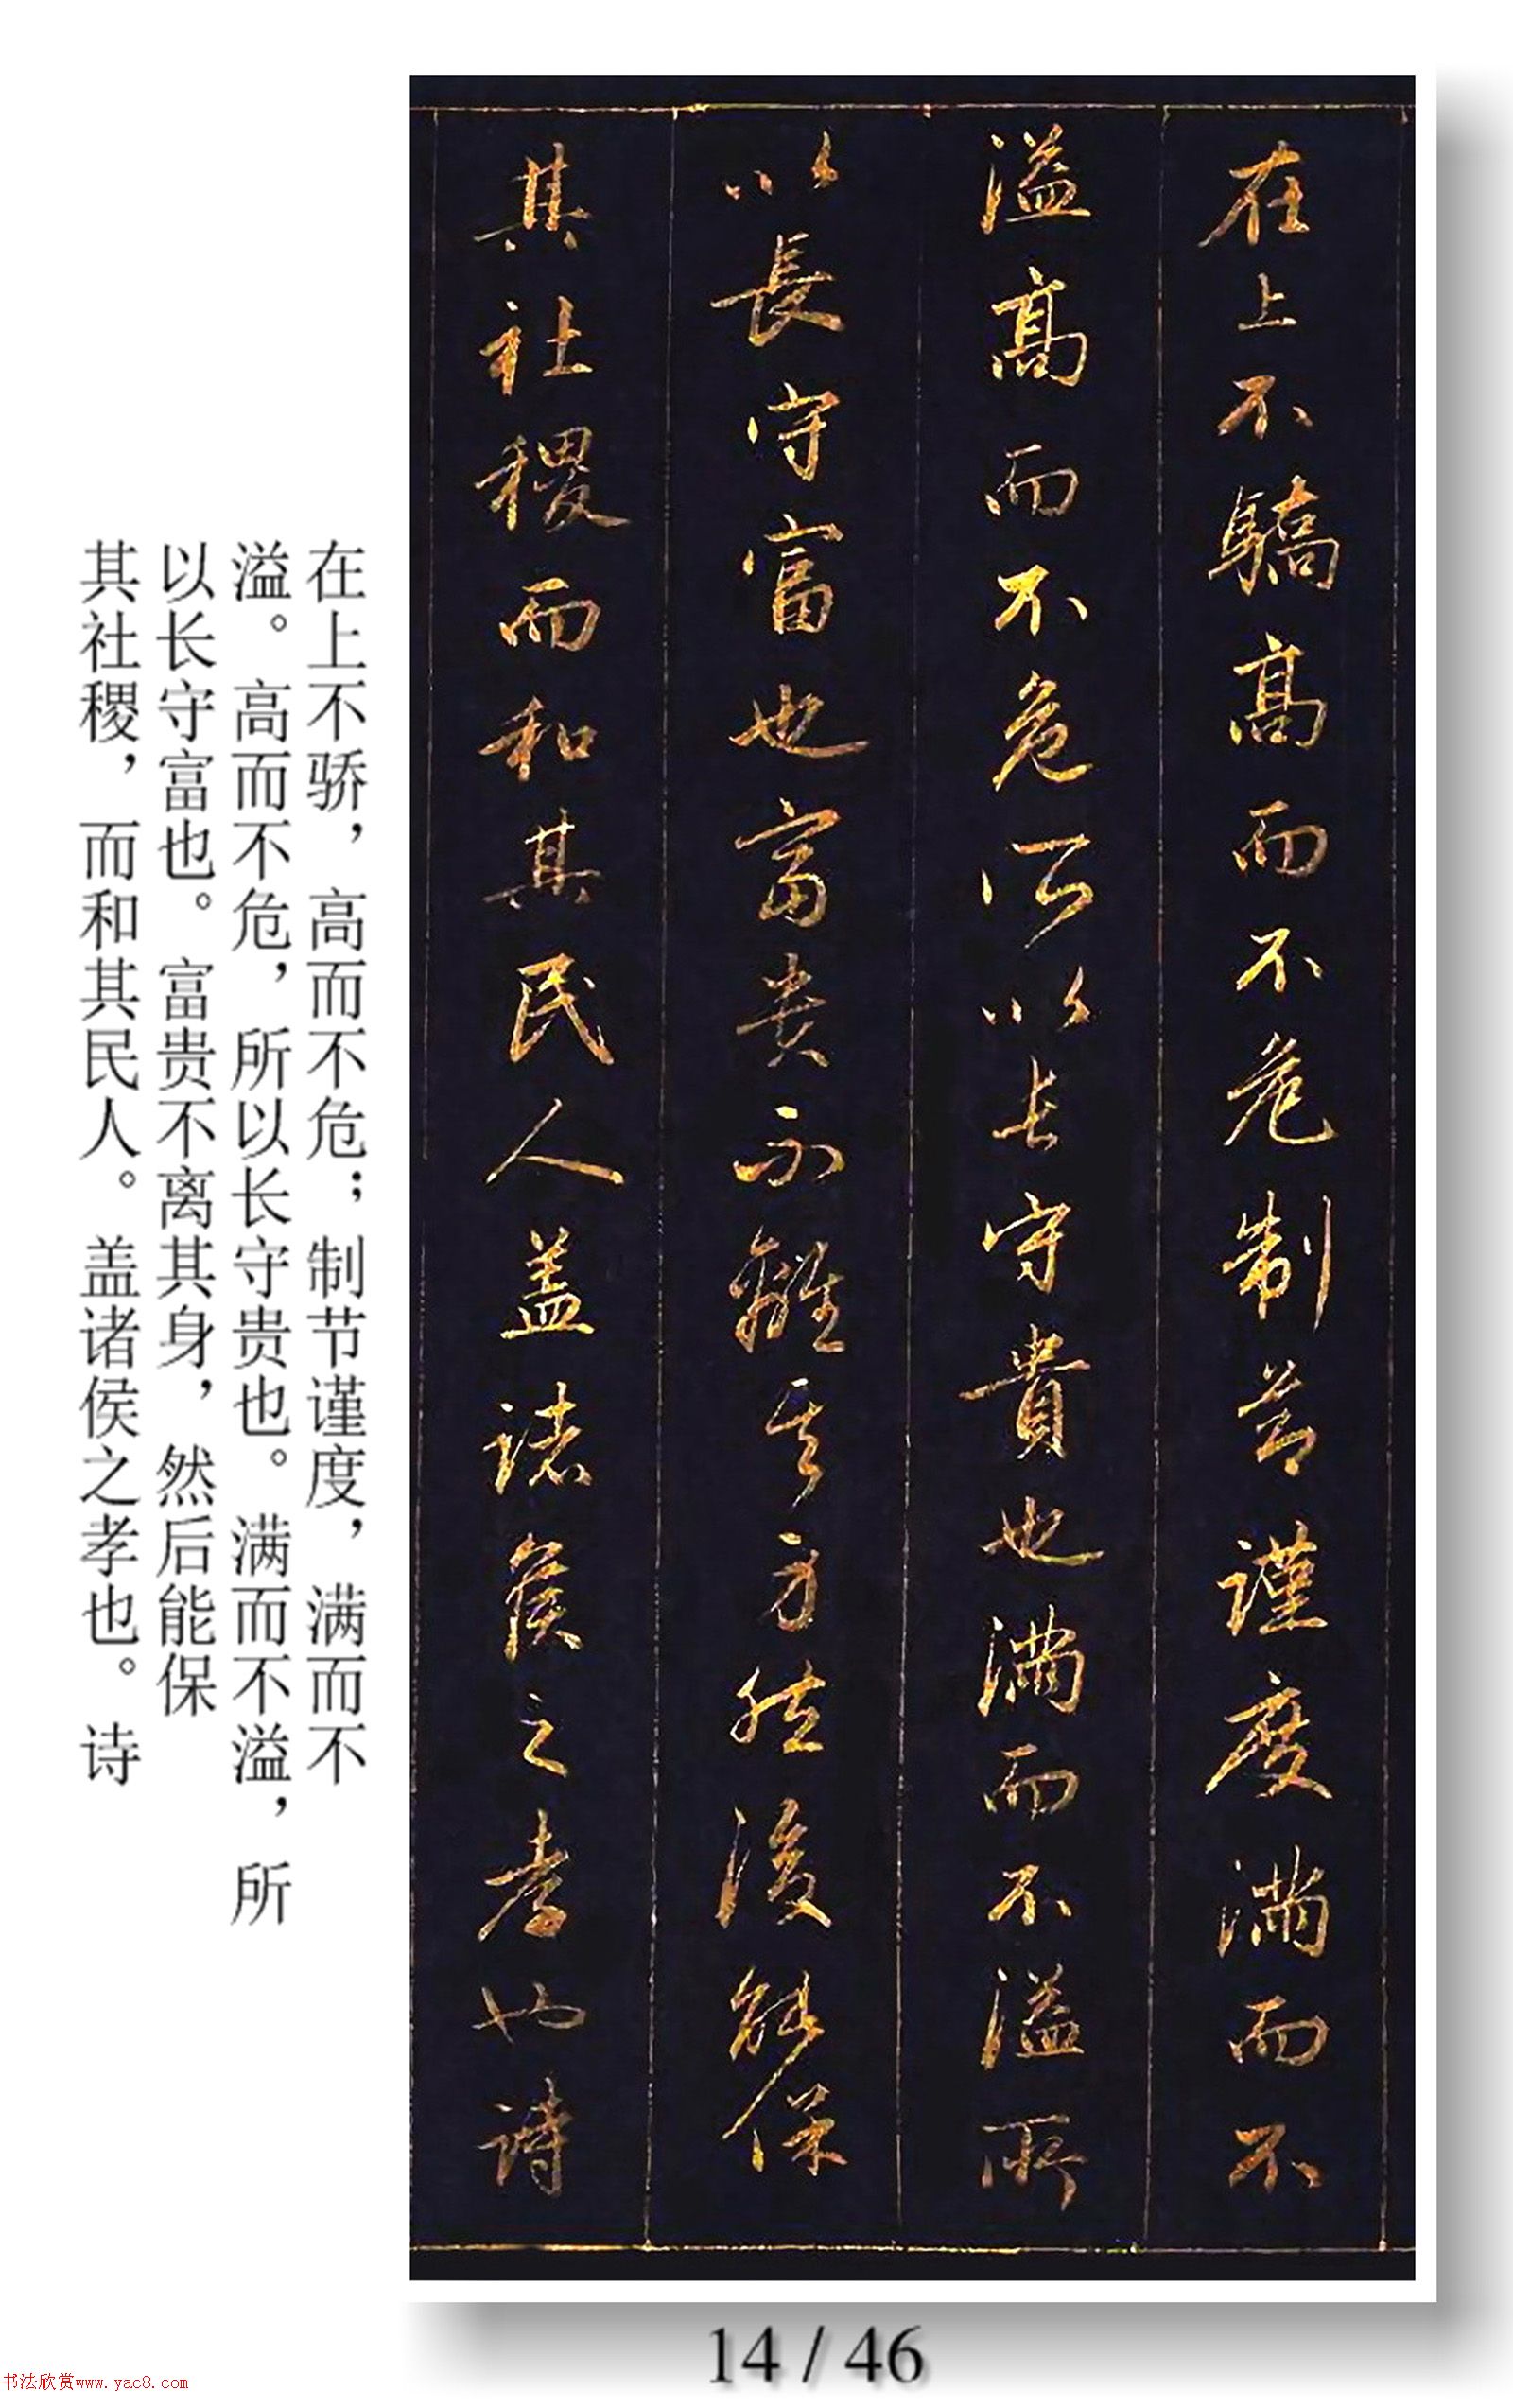 在上不驕高而不危制节謹度满而不
溢高而不危所以长守貴也满而不溢所
以長守富也富贵不離其身然後能保
其社稷而和其民人盖诸侯之孝也詩
在上不骄，高而不危；制节谨度，满而不
溢。高而不危，所以长守贵也。满而不溢，所
以长守富也。富贵不离其身，然后能保
其社稷，而和其民人。盖诸侯之孝也。诗
14 / 46
书法欣赏www.yac8.com